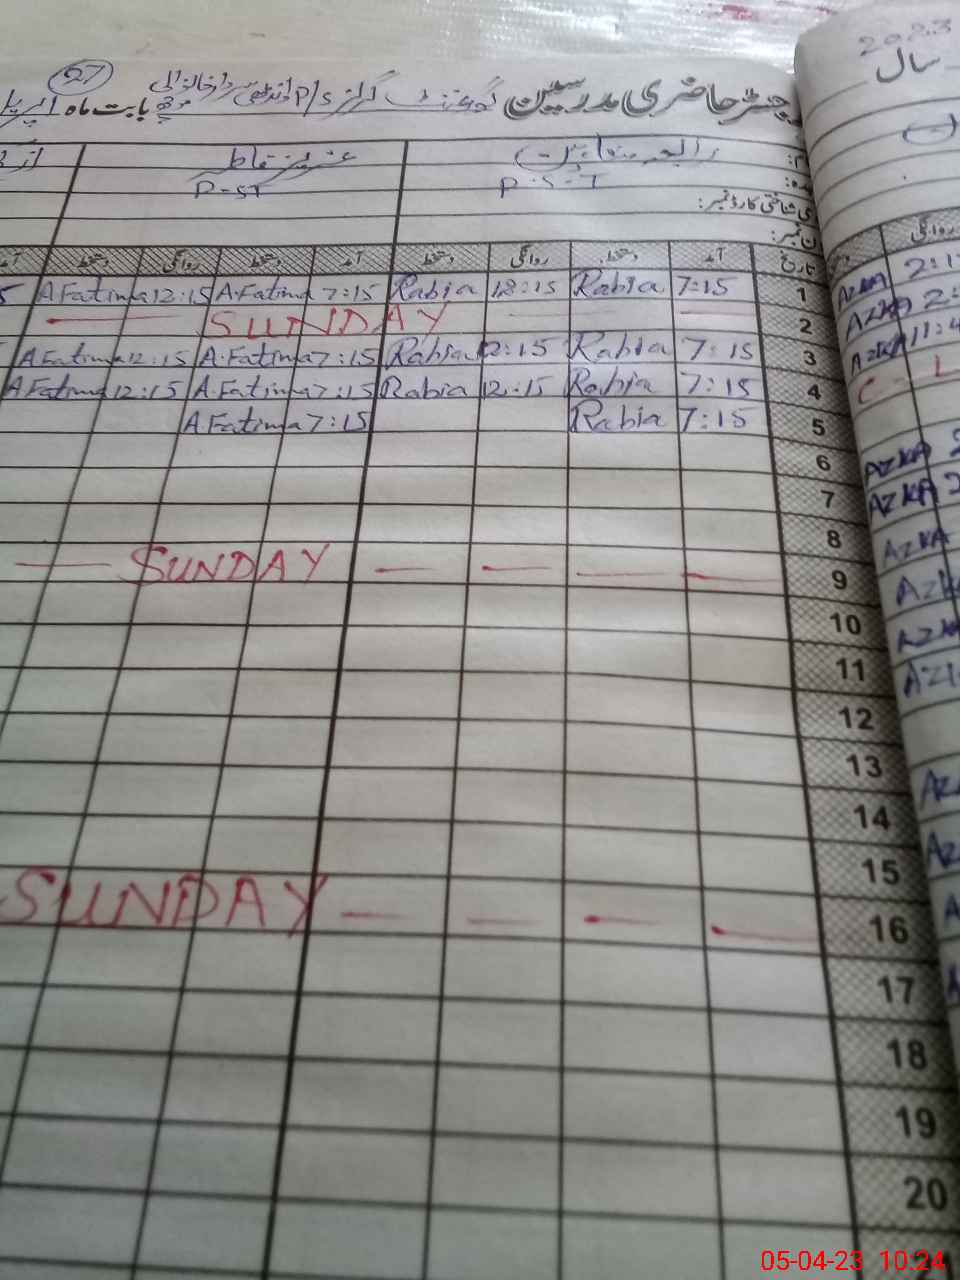 2023
سال
27
رجسٹر حاضری مدرسین گورنمنٹ گرلز P/S بابت ماہ اپریل
P-ST P.S.T
شناختی کارڈ نمبر:
تاریخ آمد دستخط روانگی دستخط آمد دستخط روانگی دستخط
A Fatima 12:15 A.Fatima 7:15 Rabia 12:15 Rabia 7:15 1
SUNDAY 2
A Fatima 12:15 A.Fatima 7:15 Rabia 12:15 Rabia 7:15 3
A Fatima 12:15 A.Fatima 7:15 Rabia 12:15 Rabia 7:15 4
A.Fatima 7:15 Rabia 7:15 5
6
7
8
SUNDAY 9
10
11
12
13
14
15
SUNDAY 16
17
18
19
20
روانگی
AZKA
AZKA
AZKA 11:4
C - L
AZKA
AZKA
AZKA
05-04-23 10:24